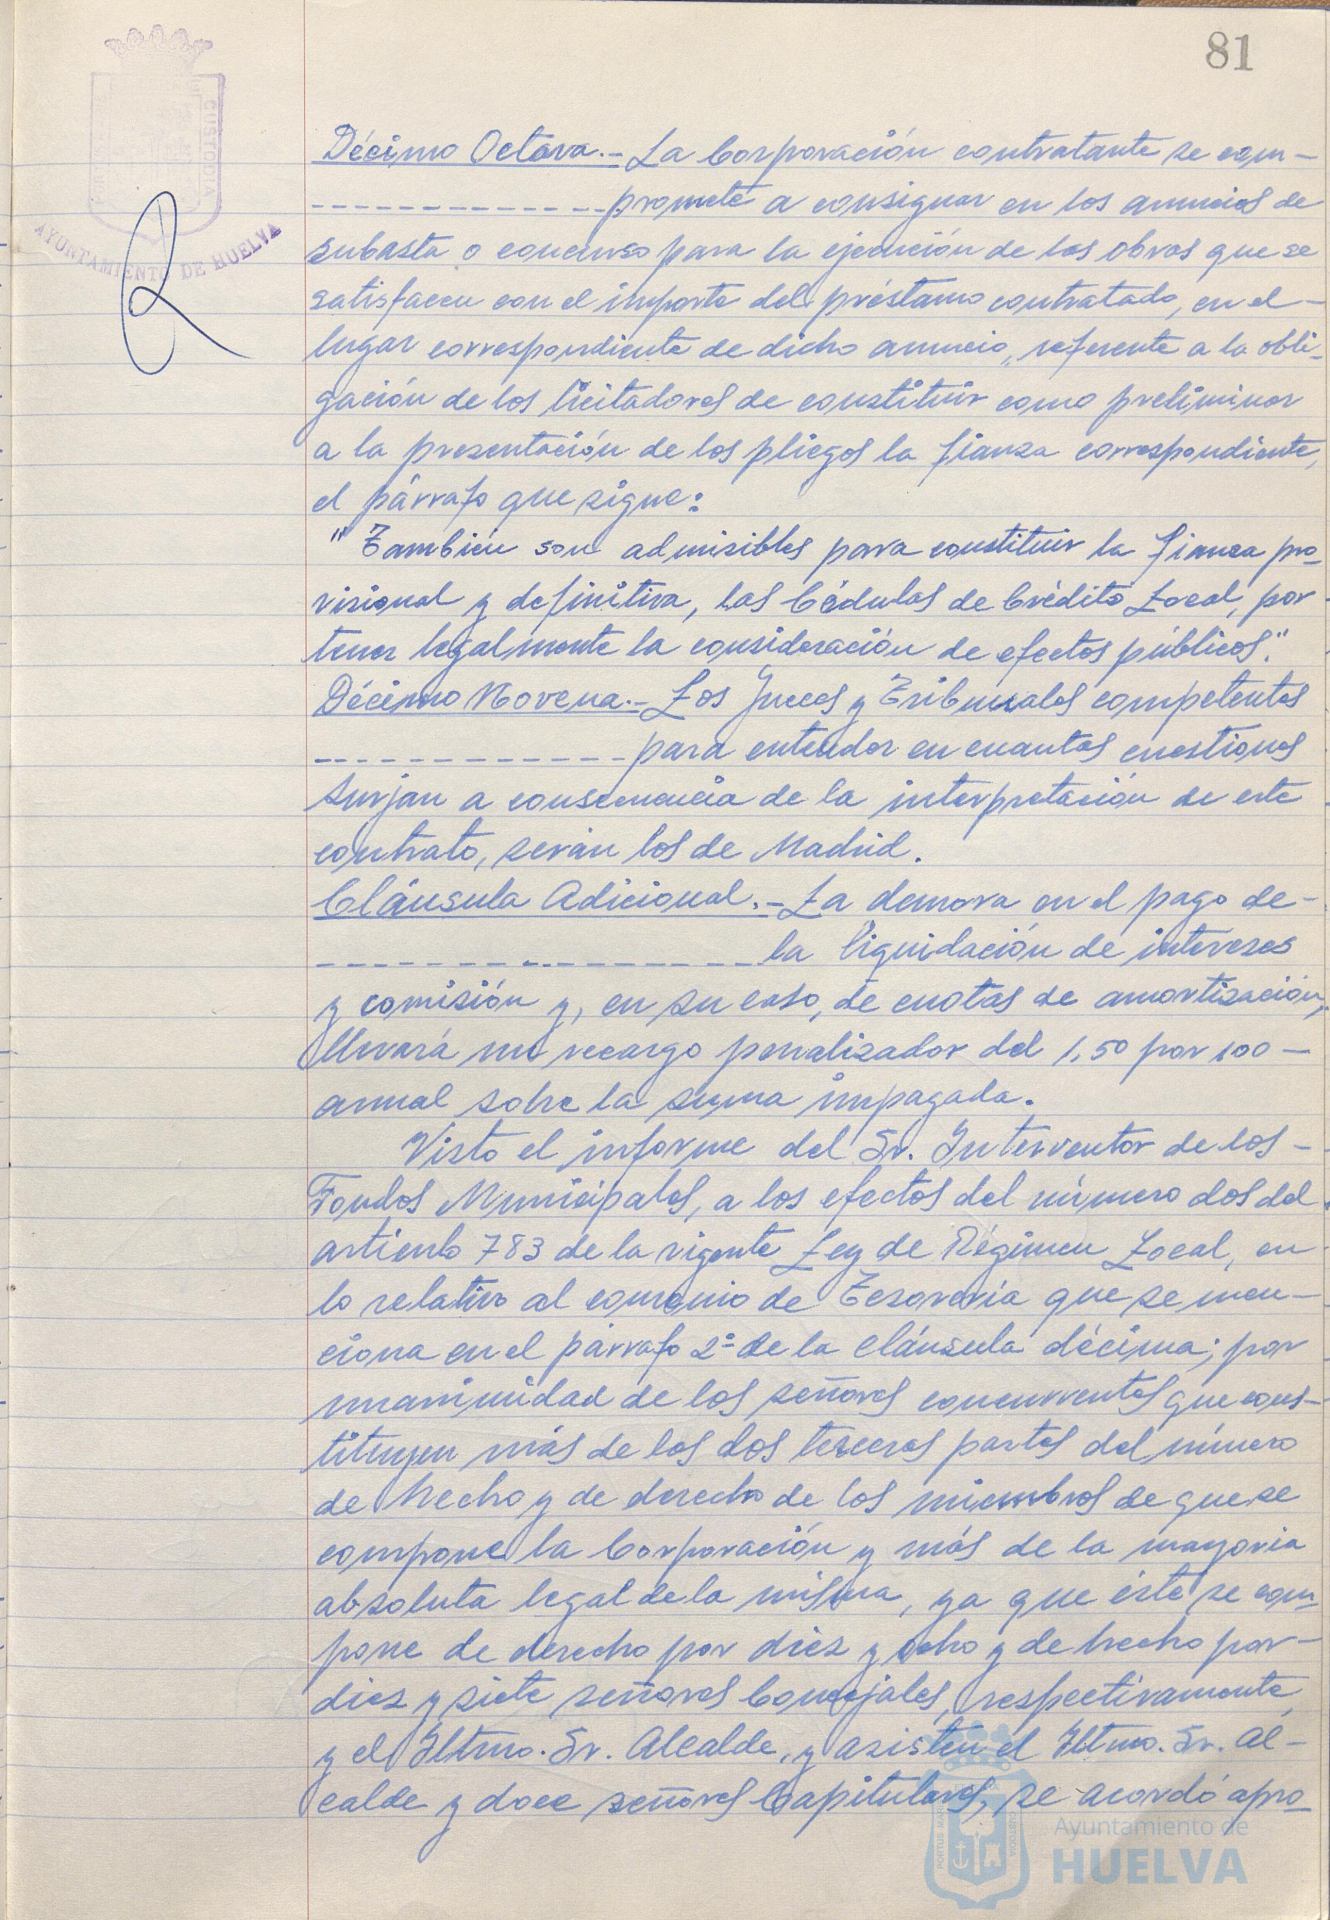 81
CUSTODIA
AYUNTAMIENTO DE HUELVA
Décimo Octava.- La Corporación contratante se com-
promete a consignar en los anuncios de
subasta o concurso para la ejecución de las obras que se
satisfacen con el importe del préstamo contratado, en el-
lugar correspondiente de dicho anuncio, referente a la obli-
gación de los licitadores de constituir como preliminar
a la presentación de los pliegos la fianza correspondiente,
el párrafo que sigue:
"También son admisibles para constituir la fianza pro-
visional y definitiva, las Cédulas de Crédito Local, por
tener legalmente la consideración de efectos públicos."
Décimo Novena.- Los Jueces y Tribunales competentes
para entender en cuantas cuestiones
surjan a consecuencia de la interpretación de este
contrato, serán los de Madrid.
Cláusula Adicional.- La demora en el pago de-
la liquidación de intereses
y comisión y, en su caso, de cuotas de amortización,
llevará un recargo penalizador del 1,50 por 100-
anual sobre la suma impagada.
Visto el informe del Sr. Interventor de los-
Fondos Municipales, a los efectos del número dos del
artículo 783 de la vigente Ley de Régimen Local, en
lo relativo al convenio de Tesorería que se men-
ciona en el párrafo 2º de la cláusula décima; por
unanimidad de los señores concurrentes que cons-
tituyen más de las dos terceras partes del número
de hecho y de derecho de los miembros de que se
compone la Corporación y más de la mayoria
absoluta legal de la misma, ya que éste se com-
pone de derecho por diez y ocho y de hecho por-
diez y siete señores Concejales, respectivamente,
y el Iltmo. Sr. Alcalde, y asisten el Iltmo. Sr. Al-
calde y doce señores Capitulares, se acordó apro-
Ayuntamiento de
HUELVA